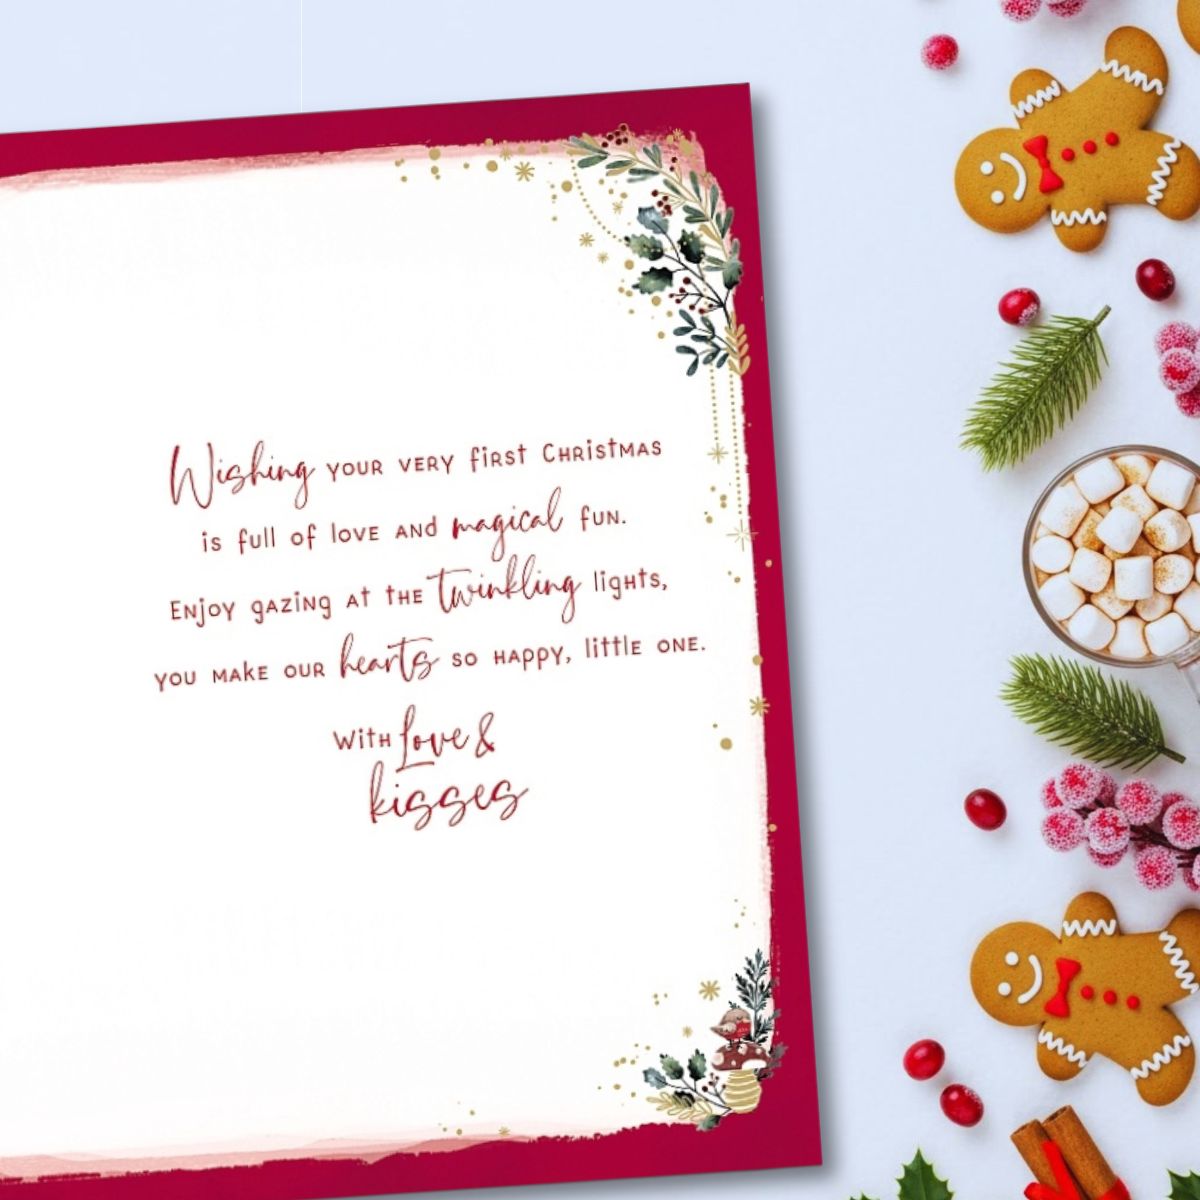 Wishing your very first Christmas
is full of love and magical fun.
Enjoy gazing at the twinkling lights,
you make our hearts so happy, little one.
With Love &
kisses